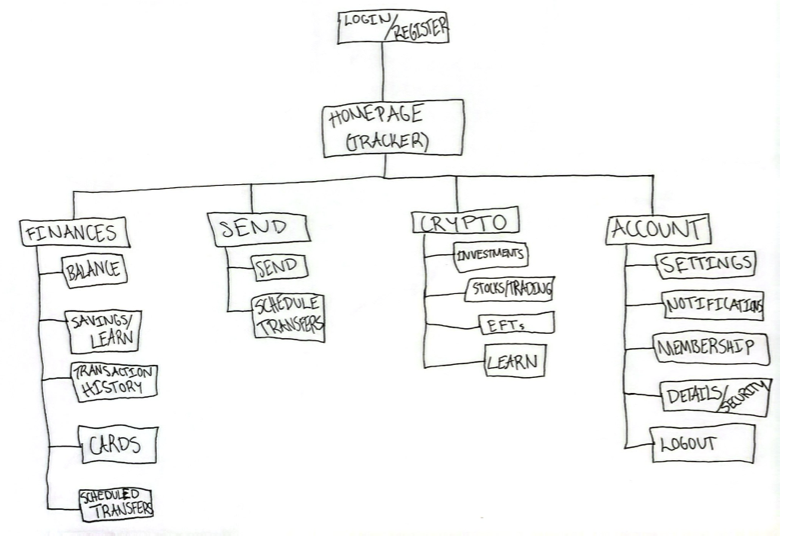 LOGIN/REGISTER
HOMEPAGE
(TRACKER)
FINANCES
BALANCE
SAVINGS/
LEARN
TRANSACTION
HISTORY
CARDS
SCHEDULED
TRANSFERS
SEND
SEND
SCHEDULE
TRANSFERS
CRYPTO
INVESTMENTS
STOCKS/TRADING
EFTs
LEARN
ACCOUNT
SETTINGS
NOTIFICATIONS
MEMBERSHIP
DETAILS/SECURITY
LOGOUT